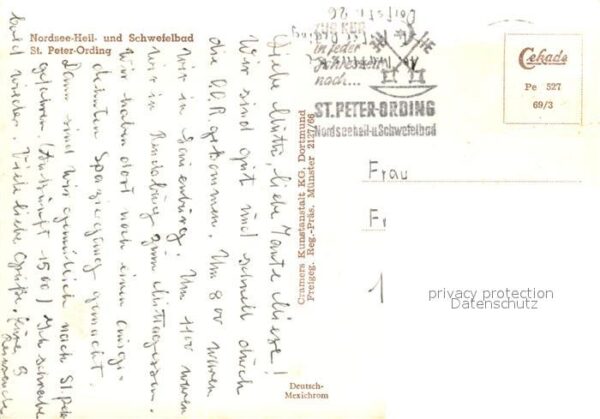 Nordsee-Heil- und Schwefelbad
St. Peter-Ording
Liebe Mutti, liebe Tante Miese!
Wir sind gut und schnell durch
die DDR gekommen. Um 8 00 waren
wir in Um 11 00 waren
wir in Rendsburg zum Mittagessen.
Wir haben dort noch einen
Spaziergang gemacht.
Dann sind wir gemütlich nach St. Peter
gefahren (Ankunft 15 00) Ich schreibe
bald wieder. Viele liebe Grüße
Cramers Kunstanstalt KG, Dortmund
Freigeg. Reg.-Präs. Münster 2127/66
Deutsch-
Mexichrom
in jeder
Jahreszeit
nach...
ST. PETER-ORDING
Nordseeheil-u.Schwefelbad
Cekade
Pe 527
69/3
Frau
Fr
1
privacy protection
Datenschutz